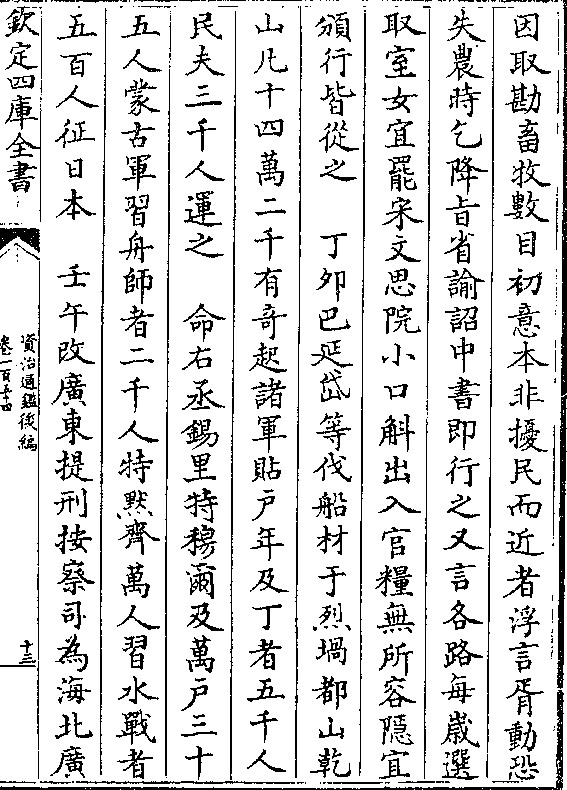 因取勘畜牧數目初意本非擾民而近者浮言胥動恐
失農時乞降旨省諭詔中書即行之又言各路每歲選
取室女宜罷宋文思院小口斛出入官糧無所容隱宜
頒行皆從之　丁卯巴延岱等伐船材于烈堝都山乾
山凡十四萬二千有奇起諸軍貼戶年及丁者五千人
民夫三千人運之　命右丞錫里特穆爾及萬戶三十
五人蒙古軍習舟師者二千人特黙齊萬人習水戰者
五百人征日本　壬午改廣東提刑按察司為海北廣
欽定四庫全書
資治通鑑後編
卷一百五十四
十三